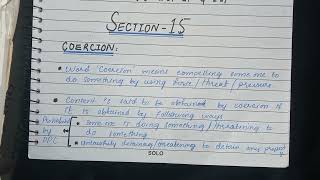 SECTION-15
COERCION:
• Word "Coercion" means compelling someone to
do something by using force/threat/pressure
• Consent is said to be obtained by coercion if
it is obtained by following ways
Prohibited by PPC
• Someone is doing something/threatening to
do something
• Unlawfully detaining/threatening to detain any property
SOLO